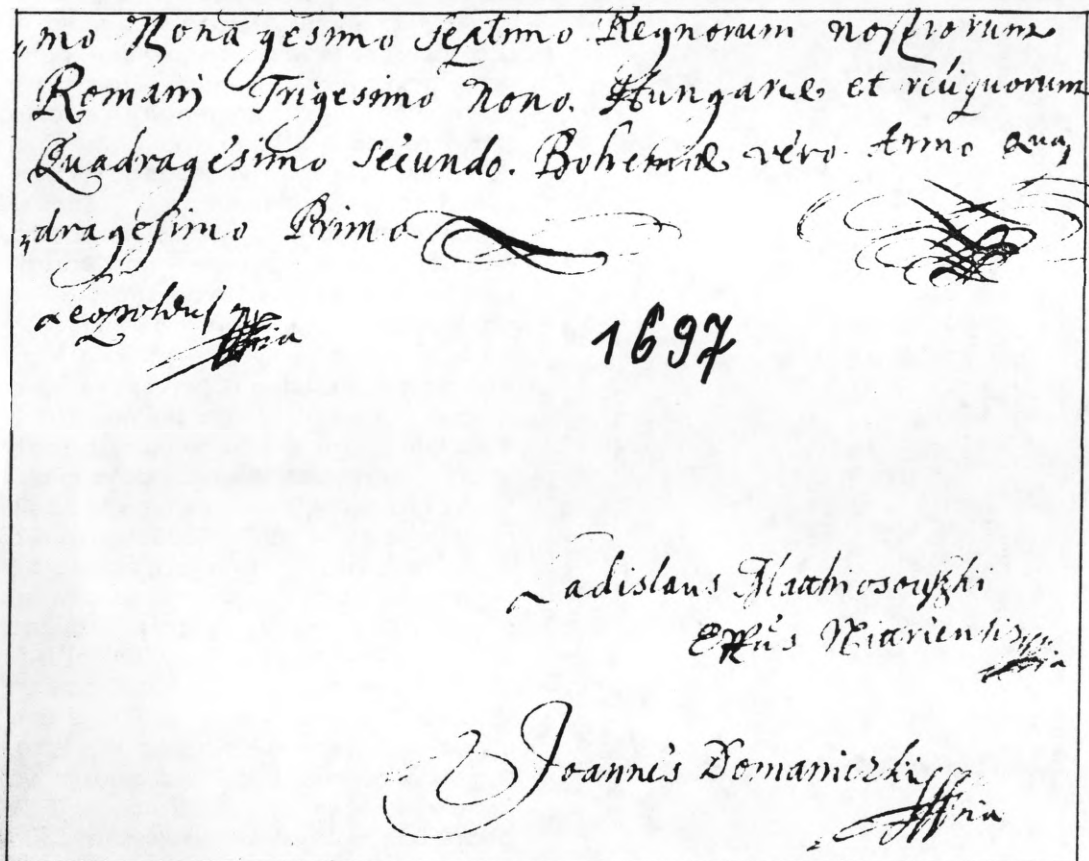 „mo Nonagesimo septimo. Regnorum nostrorum
Romani Trigesimo Nono. Hungariæ et reliquorum
Quadragesimo secundo. Bohemiæ vero Anno Qua„
„dragesimo Primo
Leopoldus mpria
1697
Ladislaus Matthiosouszki
Eppūs Nittriensis mpria
Joannes Domaniczki mpria